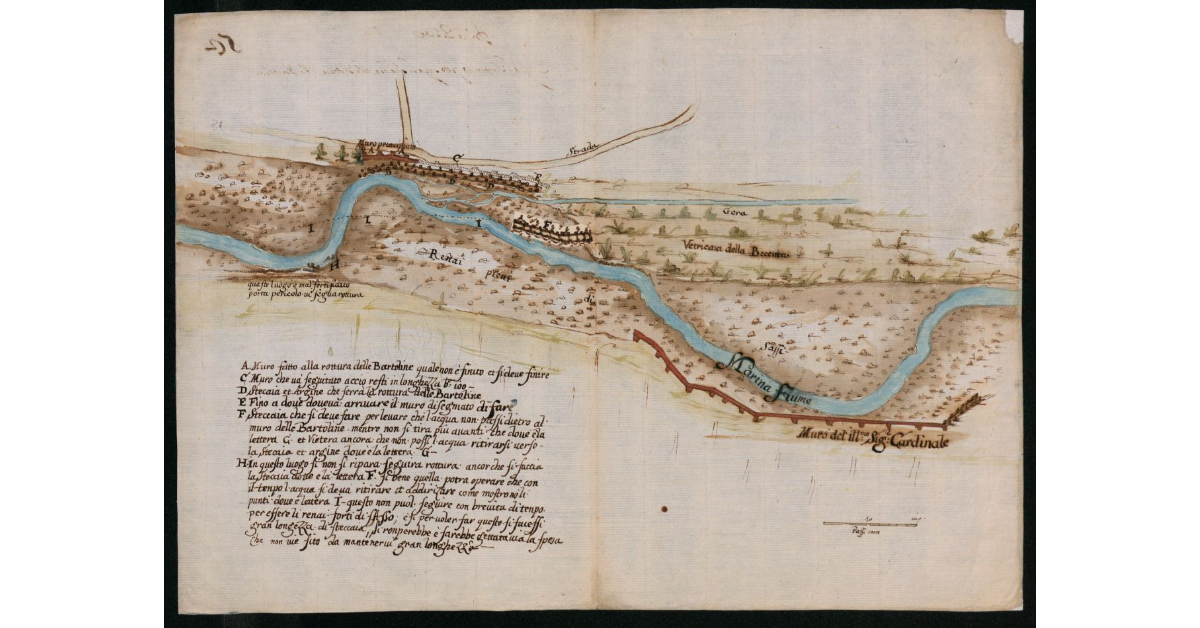 Muro principiato
Strada
C
D
E
F
Gora
Vetricaia della
I
I
I
H
Renai
pieni
di
Sassi
questo luogo è mal fortificato
porta pericolo ne segua rottura
Marina Fiume
Muro del ill.mo Sig. Cardinale
A. Muro fatto alla rottura delle Bartoline quale non è finito et si deve finire
C Muro che va seguitato acciò resti in longhezza b.ᵃ 100
D Steccaia et Argine che serra la rottura delle Bartoline
E Fino a dove doveva arrivare il muro disegnato di fare
F Steccaia che si deve fare per levare che l'acqua non passi dietro al
muro delle Bartoline mentre non si tira più avanti che dove è la
lettera C et Vietera ancora che non poss l'acqua ritirarsi verso
la steccaia et argine dove è la lettera G
H In questo luogo si non si ripara seguira rottura ancor che si faccia
la steccaia dove è la lettera F si bene quella potra operare che con
il tempo l'acqua si deva ritirare et addirizare come mostrono li
punti dove è lettera I questo non puol seguire con brevita di tempo
per essere li renai forti di sasso, e si per voler far questo si facessi
gran longezza di steccaia si romperebbe e sarebbe gettata via la spesa
che non vie sito da mantenervi gran longhezza
50 100
Passi cento